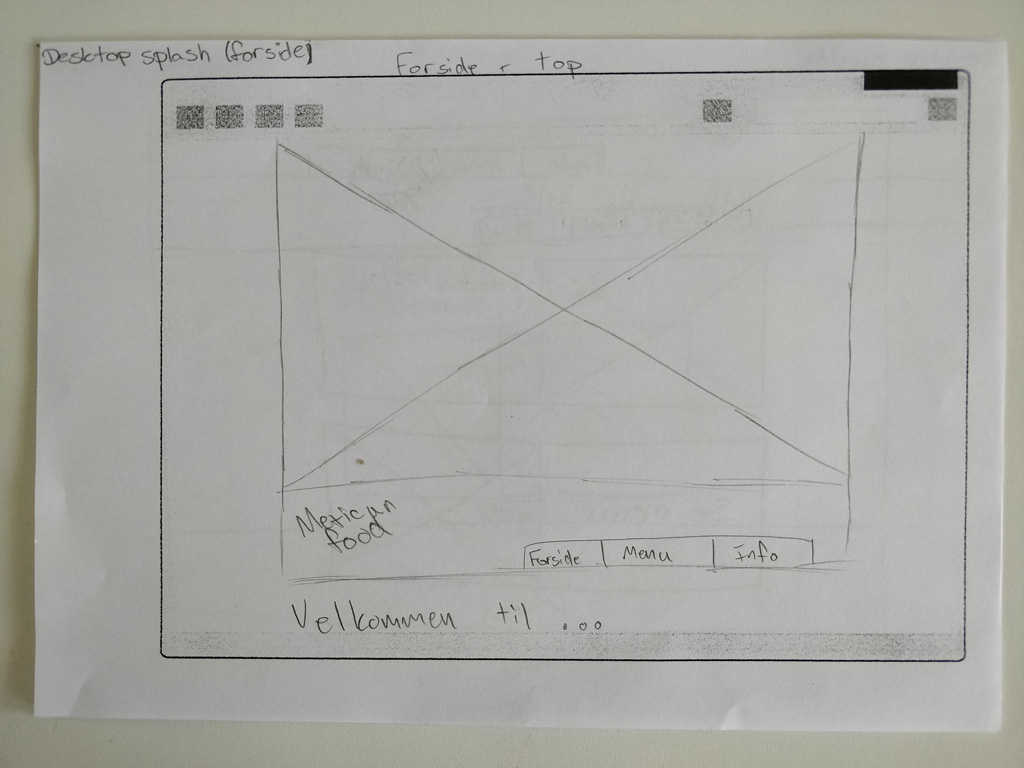 Desktop splash (forside)
Forside - top
Mexican
food
Forside Menu Info
Velkommen til ...